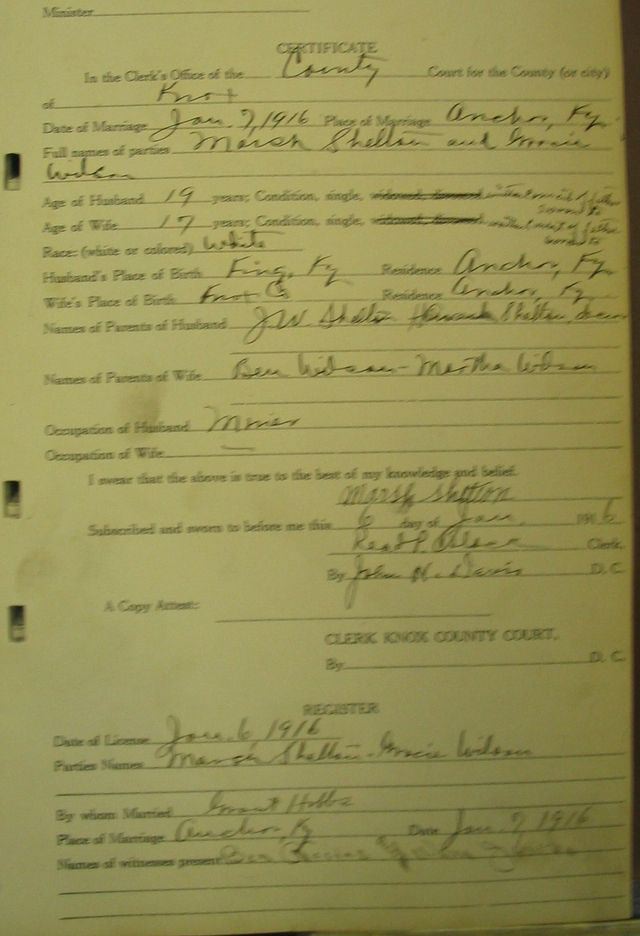 Minister
CERTIFICATE
In the Clerk's Office of the County Court for the County (or city)
of Knox
Date of Marriage Jan. 7, 1916 Place of Marriage Anchor, Ky.
Full names of parties Marsh Shelton and Gracie
Wilson
Age of Husband 19 years; Condition, single,
Age of Wife 17 years; Condition, single,
Race: (white or colored) White
Husband's Place of Birth King, Ky Residence Anchor, Ky.
Wife's Place of Birth Knox Co Residence Anchor, Ky.
Names of Parents of Husband J.W. Shelton Shelton,
Names of Parents of Wife Ben Wilson - Martha Wilson
Occupation of Husband Miner
Occupation of Wife —
I swear that the above is true to the best of my knowledge and belief.
Marsh Shelton
Subscribed and sworn to before me this 6 day of Jan. 1916
Read P. Clerk.
By John H. Davis D. C.
A Copy Attest:
CLERK KNOX COUNTY COURT.
By D. C.
REGISTER
Date of License Jan. 6 1916
Parties Names Marsh Shelton - Gracie Wilson
By whom Married Grant Hobbs
Place of Marriage Anchor, Ky Date Jan. 7, 1916
Names of witnesses present Ben